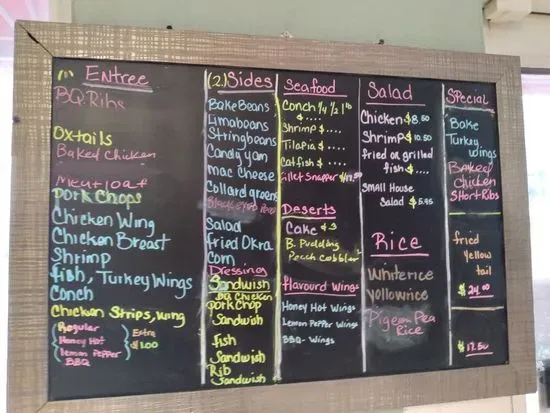 (1) Entree
BQ.Ribs
Oxtails
Baked Chicken
Meatloaf
Pork Chops
Chicken Wing
Chicken Breast
Shrimp
fish, Turkey Wings
Conch
Chicken Strips, wing
Regular
Honey Hot
lemon Pepper
BBQ
Extra
$1.00
(2) Sides
Bake Beans
Limabeans
Stringbeans
Candy yam
mac Cheese
Collard greens
Blackeyed Peas
Salad
Fried Okra
Corn
Dressing
Sandwish
BQ Chicken
Pork Chop
Sandwish
fish
Sandwish
Rib
Sandwish
Seafood
Conch 1/4 1/2 1 lb
$....
Shrimp $....
Tilapia $....
Cat fish $....
fillet Snapper $17.50
Deserts
Cake $3
B. Pudding
Peach Cobbler
Flavoured Wings
Honey Hot Wings
Lemon Pepper Wings
BBQ- Wings
Salad
Chicken $8.50
Shrimp $10.50
fried or grilled
fish $....
Small House
Salad $5.95
Rice
White rice
Yellow rice
Pigeon Pea
Rice
Special
Bake
Turkey
wings
Baked
Chicken
Short Ribs
fried
yellow
tail
$24.00
$17.50